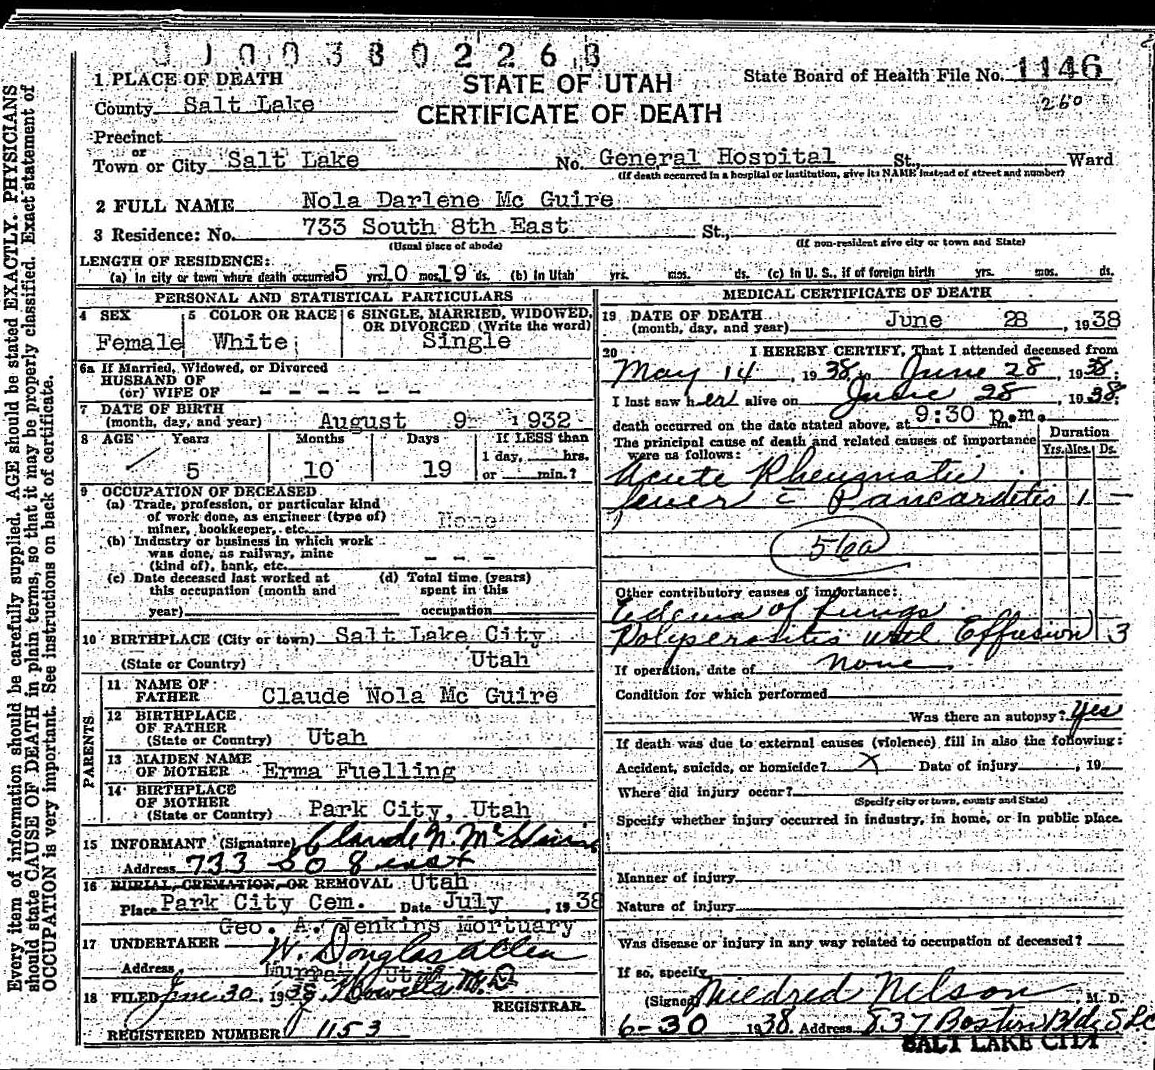 J 1 0 0 3 8 0 2 2 6 8
1 PLACE OF DEATH
STATE OF UTAH
CERTIFICATE OF DEATH
State Board of Health File No. 1146
260
County Salt Lake
Precinct
or
Town or City Salt Lake No. General Hospital St., Ward
(If death occurred in a hospital or institution, give its NAME instead of street and number)
2 FULL NAME Nola Darlene Mc Guire
3 Residence: No. 733 South 8th East St.,
(Usual place of abode) (If non-resident give city or town and State)
LENGTH OF RESIDENCE:
(a) In city or town where death occurred 5 yrs. 10 mos. 19 ds. (b) In Utah yrs. mos. ds. (c) In U. S., if of foreign birth yrs. mos. ds.
PERSONAL AND STATISTICAL PARTICULARS
4 SEX
Female
5 COLOR OR RACE
White
6 SINGLE, MARRIED, WIDOWED,
OR DIVORCED (Write the word)
Single
6a If Married, Widowed, or Divorced
HUSBAND OF
(or) WIFE OF - - - - - -
7 DATE OF BIRTH
(month, day, and year) August 9 1932
8 AGE Years Months Days If LESS than
5 10 19 1 day, hrs.
or min.?
9 OCCUPATION OF DECEASED
(a) Trade, profession, or particular kind
of work done, as engineer (type of)
miner, bookkeeper, etc. None
(b) Industry or business in which work
was done, as railway, mine
(kind of), bank, etc. - - -
(c) Date deceased last worked at
this occupation (month and
year)
(d) Total time (years)
spent in this
occupation
10 BIRTHPLACE (City or town) Salt Lake City
(State or Country) Utah
PARENTS
11 NAME OF
FATHER Claude Nola Mc Guire
12 BIRTHPLACE
OF FATHER
(State or Country) Utah
13 MAIDEN NAME
OF MOTHER Erma Fuelling
14 BIRTHPLACE
OF MOTHER
(State or Country) Park City, Utah
15 INFORMANT (Signature) Claude N. Mc Guire
Address 733 So 8 east
16 BURIAL, CREMATION, OR REMOVAL Utah
Place Park City Cem. Date July , 1938
Geo. A. Jenkins Mortuary
17 UNDERTAKER W. Douglas Allen
Address Murray, Utah
18 FILED Jun 30, 1938 Howells M.D.
REGISTRAR.
REGISTERED NUMBER 1153
MEDICAL CERTIFICATE OF DEATH
19 DATE OF DEATH
(month, day, and year) June 28 , 1938
20 I HEREBY CERTIFY, That I attended deceased from
May 14 , 1938, to June 28 , 1938;
I last saw her alive on June 28 , 1938;
death occurred on the date stated above, at 9:30 p.m.
The principal cause of death and related causes of importance
were as follows:
Duration
Yrs. Mos. Ds.
Acute Rheumatic
fever c̄ Pancarditis 1 —
56a
Other contributory causes of importance:
Edema of Lungs
Polyserositis with Effusion 3
If operation, date of none
Condition for which performed
Was there an autopsy? Yes
If death was due to external causes (violence) fill in also the following:
Accident, suicide, or homicide? X Date of injury , 19
Where did injury occur?
(Specify city or town, county and State)
Specify whether injury occurred in industry, in home, or in public place.
Manner of injury
Nature of injury
Was disease or injury in any way related to occupation of deceased?
If so, specify
(Signed) Mildred Nelson , M. D.
6-30 1938 Address 837 Boston Bldg SLC
SALT LAKE CITY
Every item of information should be carefully supplied. AGE should be stated EXACTLY. PHYSICIANS
should state CAUSE OF DEATH in plain terms, so that it may be properly classified. Exact statement of
OCCUPATION is very important. See instructions on back of certificate.